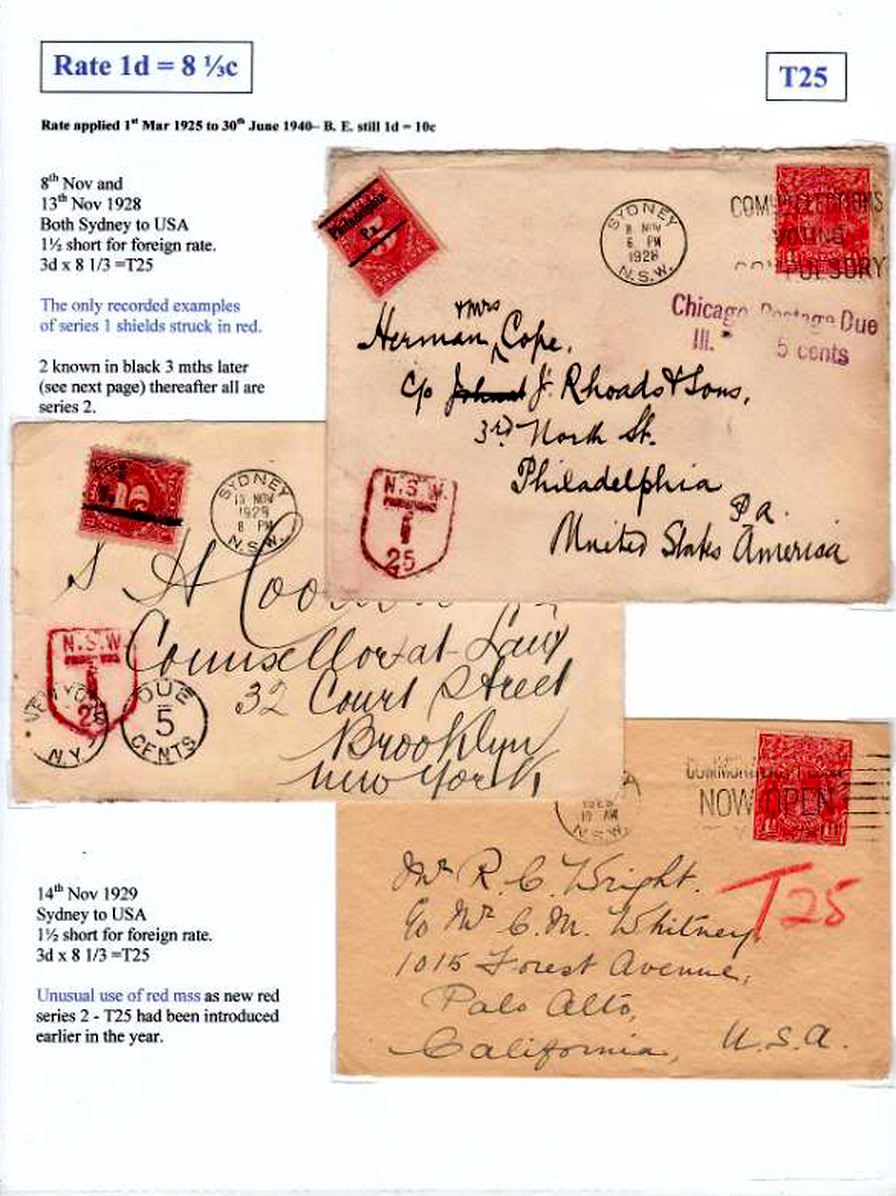 Rate 1d = 8 ⅓c
T25
Rate applied 1st Mar 1925 to 30th June 1940– B. E. still 1d = 10c
8th Nov and
13th Nov 1928
Both Sydney to USA
1½ short for foreign rate.
3d x 8 1/3 =T25
The only recorded examples
of series 1 shields struck in red.
2 known in black 3 mths later
(see next page) thereafter all are
series 2.
Philadelphia
Pa.
SYDNEY
8 NOV
6 PM
1928
N.S.W.
VOTING
COMPULSORY
Chicago Postage Due
Ill. 5 cents
& Mrs
Herman Cope,
c/o J. Rhoads & Sons,
3rd North St.
Philadelphia
Pa.
United States America
N.S.W.
T
25
SYDNEY
13 NOV
1928
8 PM
N.S.W.
S H
Counsellor at Law
32 Court Street
Brooklyn
New York
N.S.W.
T
NEW YORK
N.Y.
DUE
5
CENTS
NOW OPEN
10 AM
N.S.W.
Mr R. C. Wright.
c/o Mr C. M. Whitney
1015 Forest Avenue,
Palo Alto,
California, U.S.A.
T25
14th Nov 1929
Sydney to USA
1½ short for foreign rate.
3d x 8 1/3 =T25
Unusual use of red mss as new red
series 2 - T25 had been introduced
earlier in the year.